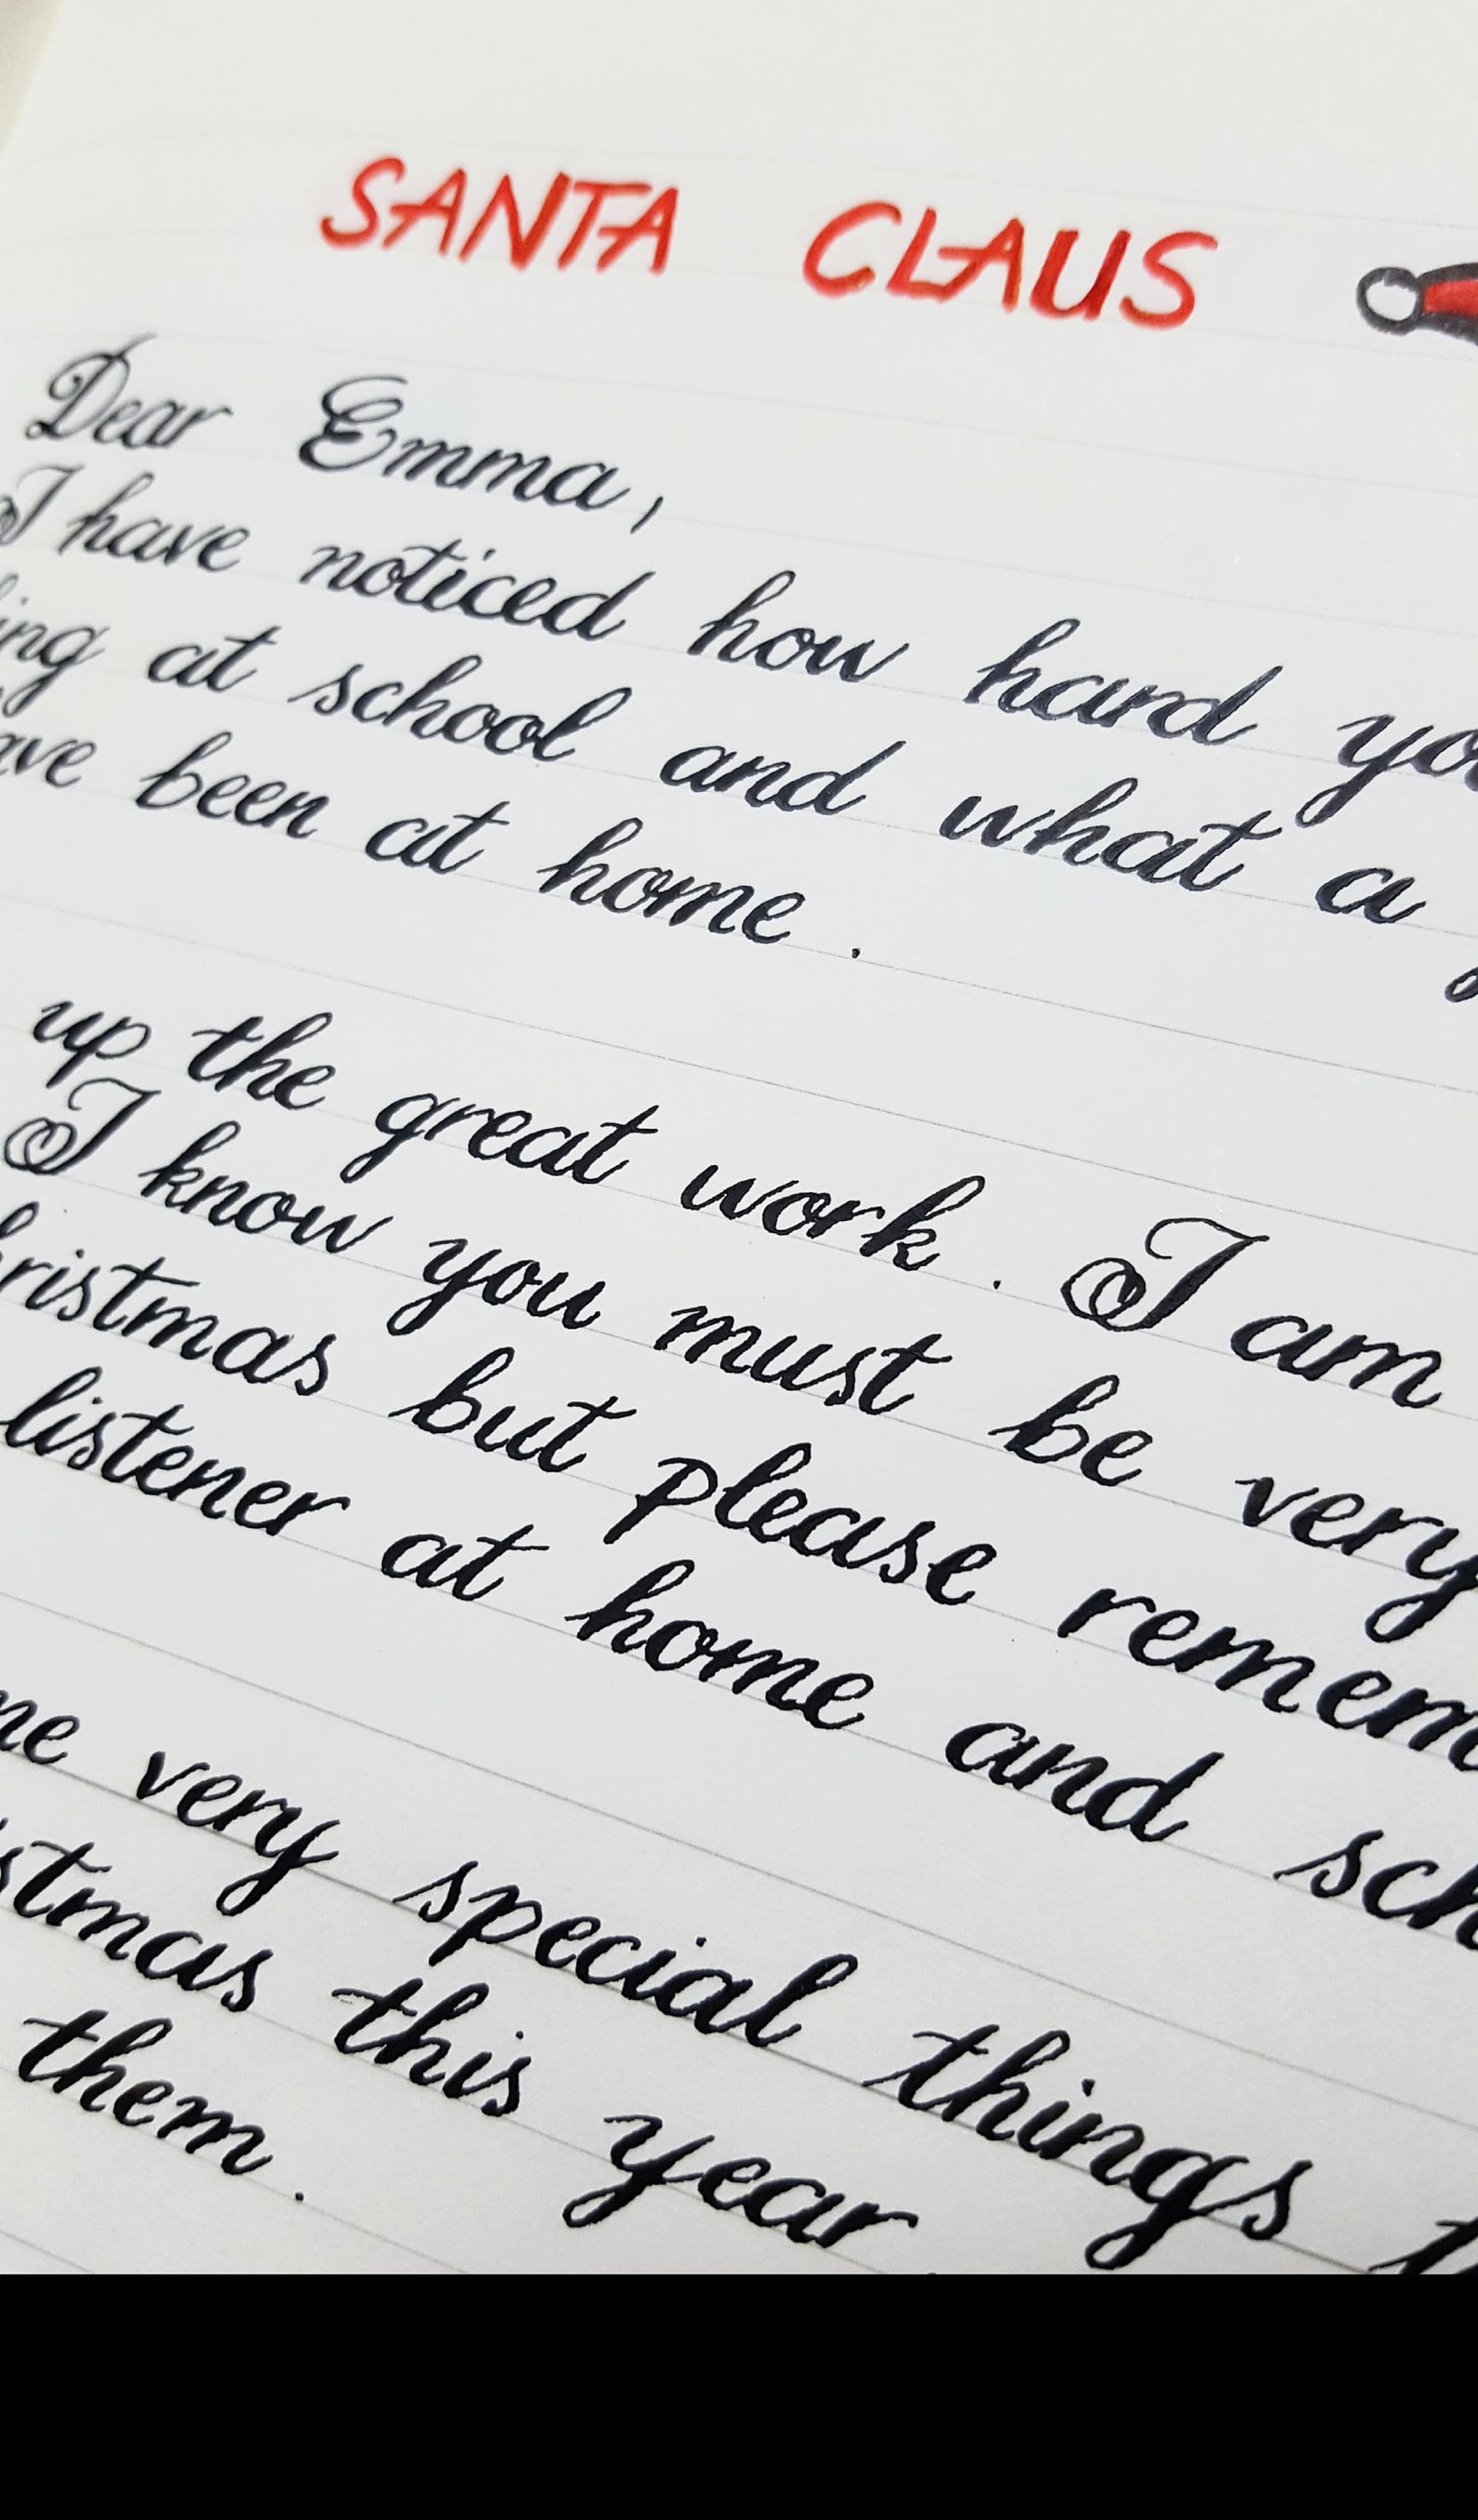 SANTA CLAUS
Dear Emma,
I have noticed how hard yo
ing at school and what a
ave been at home.
up the great work. I am
I know you must be very
hristmas but please remem
listener at home and sch
me very special things
stmas this year
them.